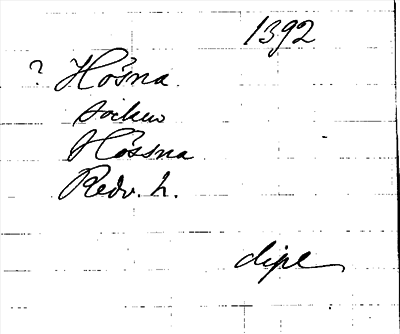 1392
? Hösna
socken
Hössna
Redv. h.
dipl